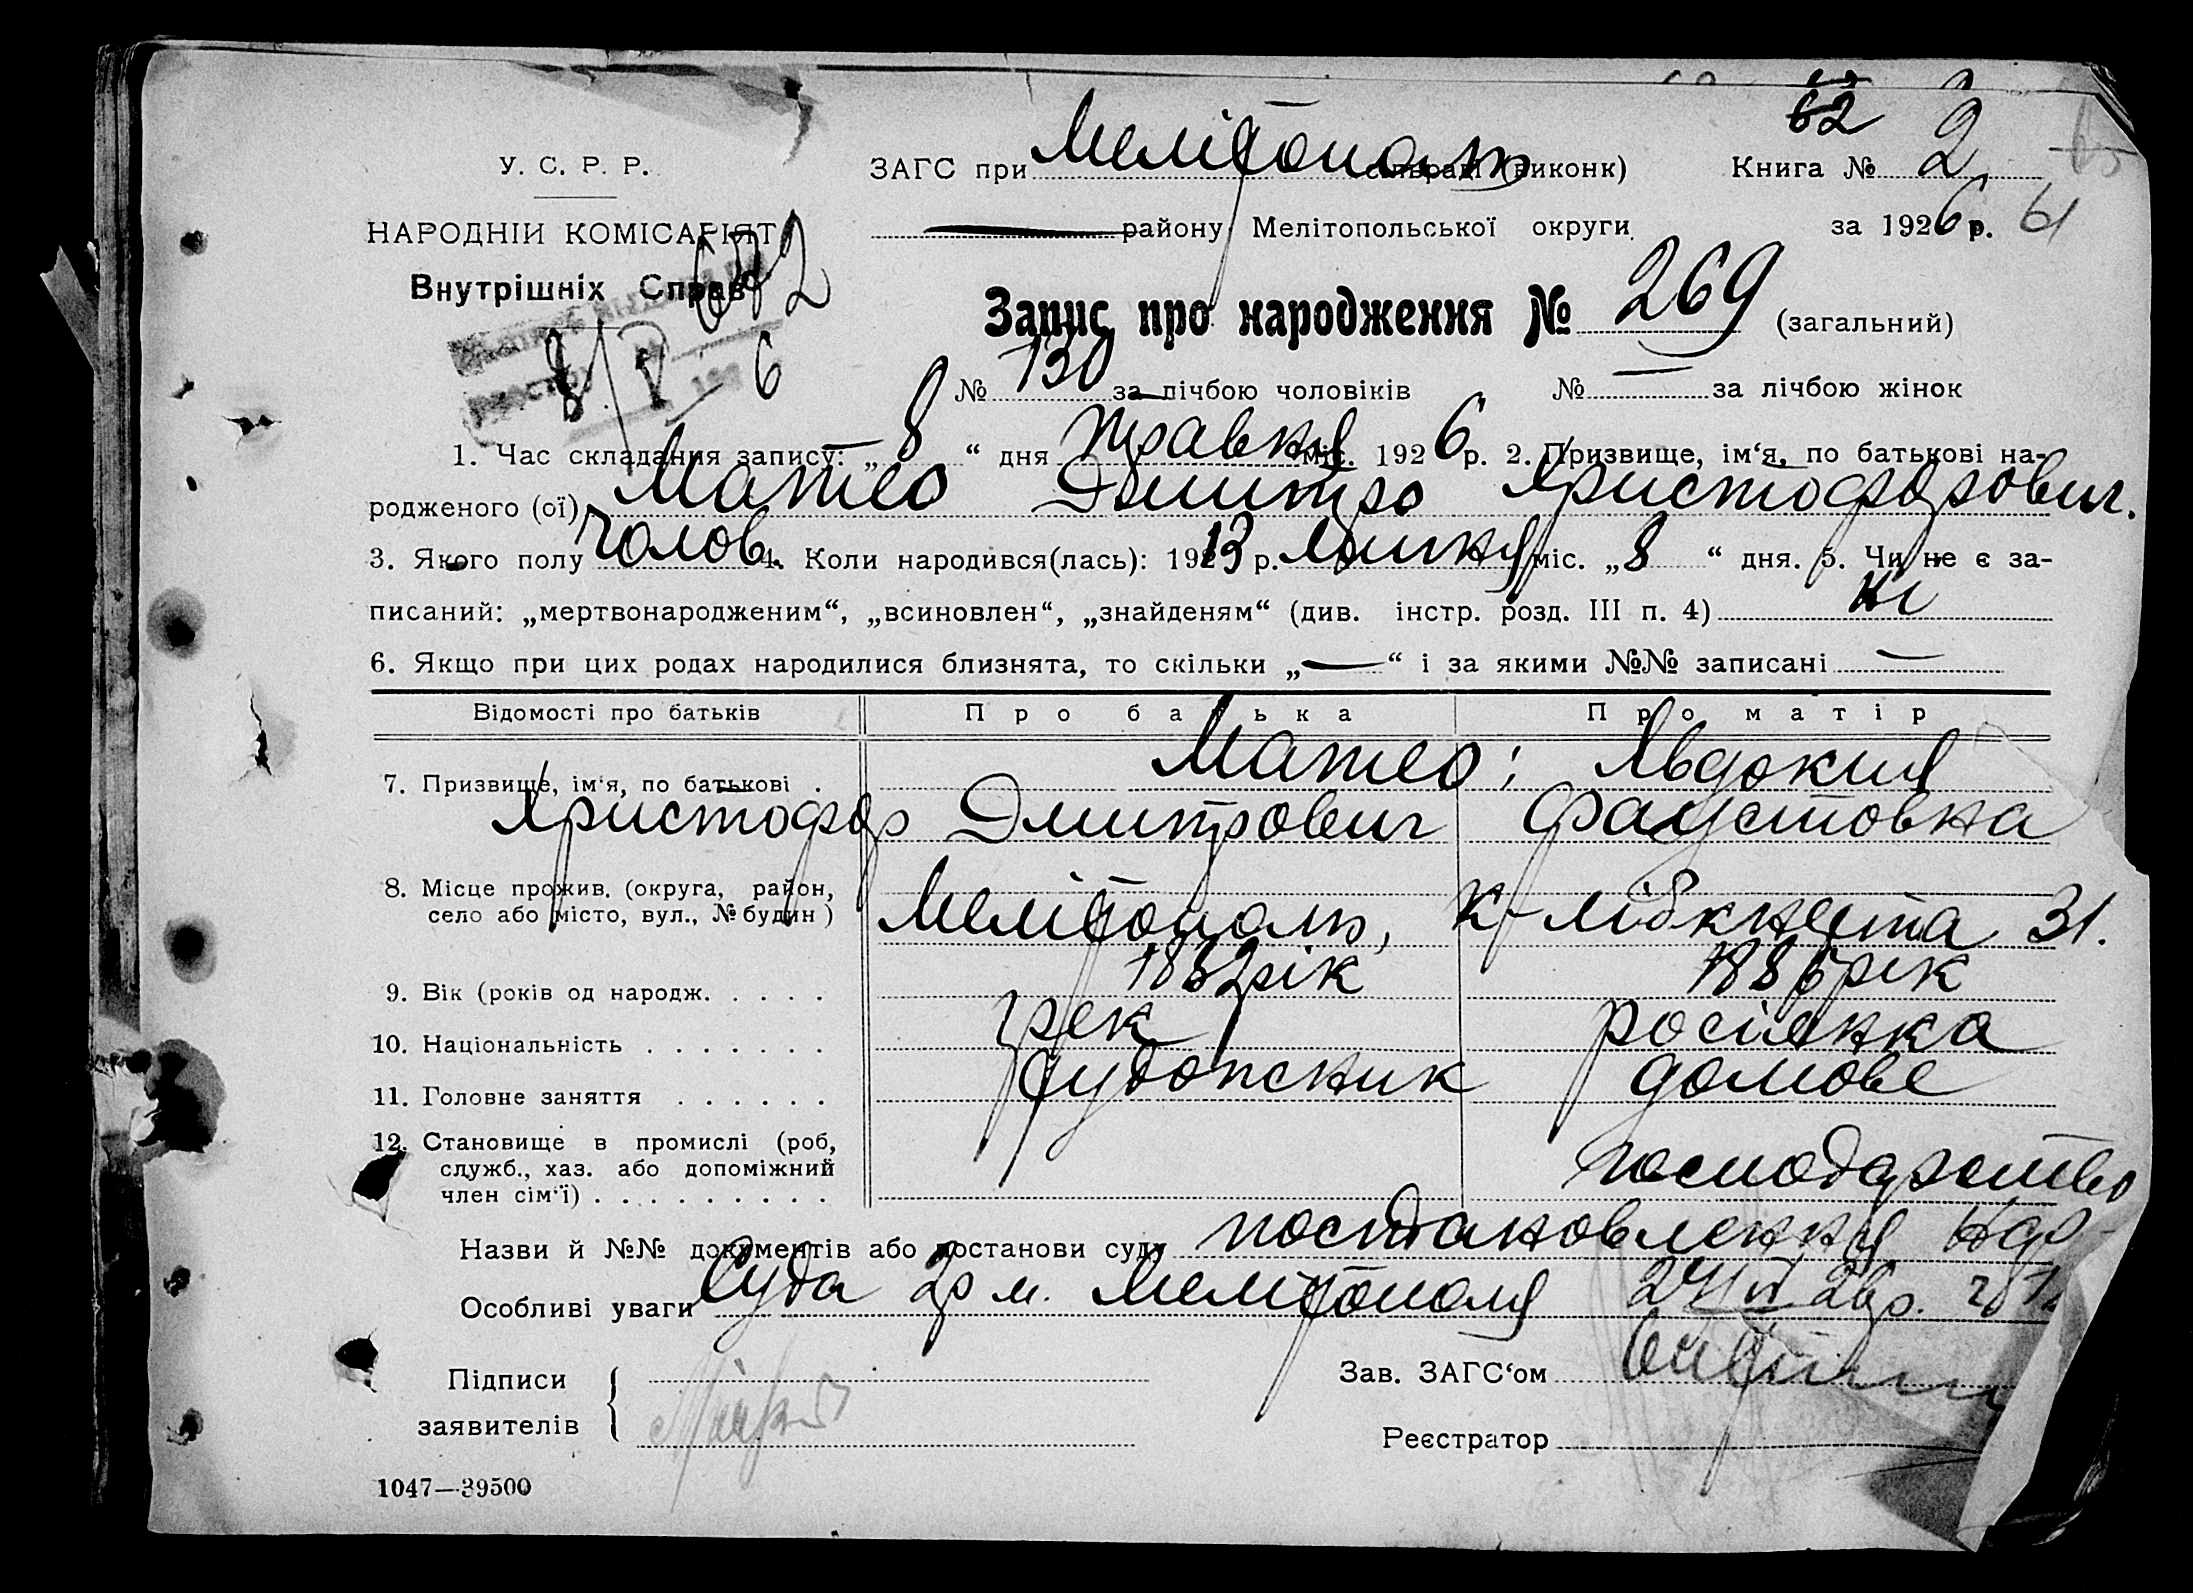 62
У. С. Р. Р. ЗАГС при Мелітополь сільраді (виконк) Книга № 2
НАРОДНІЙ КОМІСАРІЯТ району Мелітопольської округи за 1926 р. 61
Внутрішніх Справ
Запис про народження № 269 (загальний)
№ 130 за лічбою чоловіків № — за лічбою жінок
1. Час складання запису: „8“ дня травня міс. 1926 р. 2. Призвище, ім‘я, по батькові на-
родженого (ої) Матео Дмитро Христофорович.
3. Якого полу чолов. 4. Коли народився(лась): 1913 р. липня міс. „8“ дня. 5. Чи не є за-
писаний: „мертвонародженим“, „всиновлен“, „знайденям“ (див. інстр. розд. III п. 4) ні
6. Якщо при цих родах народилися близнята, то скільки „—“ і за якими №№ записані —
Відомості про батьків Про батька Про матір
7. Призвище, ім‘я, по батькові . Матео; Явдокия
Христофор Дмитрович Фаустовна
8. Місце прожив. (округа, район,
село або місто, вул., № будин) Мелітополь, К-Лібкнехта 31.
9. Вік (років од народж. . . . . 1882 рік 1886 рік
10. Національність . . . . . . . грек росіянка
11. Головне заняття . . . . . . художник домове
12. Становище в промислі (роб,
служб., хаз. або допоміжний господарство
член сім‘ї) . . . . . . . . . .
Назви й №№ документів або постанови суду постановлення Нар-
Особливі уваги Суда 2р м. Мелітополя 24/IV 26р.
Підписи Зав. ЗАГС‘ом
заявителів
Реєстратор
1047—39500